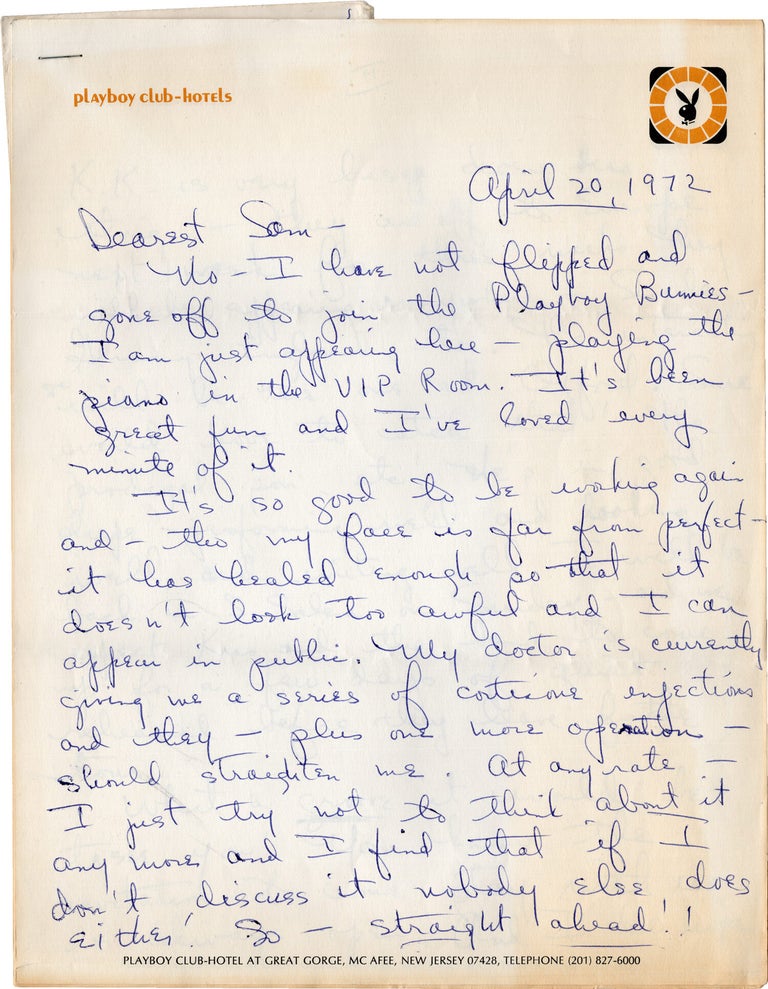 playboy club-hotels
April 20, 1972
Dearest Sam -
No - I have not flipped and
gone off to join the Playboy Bunnies -
I am just appearing here - playing the
piano in the VIP Room. It's been
great fun and I've loved every
minute of it.
It's so good to be working again
and - tho my face is far from perfect -
it has healed enough so that it
doesn't look too awful and I can
appear in public. My doctor is currently
giving me a series of cortisone injections
and they - plus one more operation -
should straighten me. At any rate -
I just try not to think about it
any more and I find that if I
don't discuss it nobody else does
either! So - straight ahead!!
PLAYBOY CLUB-HOTEL AT GREAT GORGE, MC AFEE, NEW JERSEY 07428, TELEPHONE (201) 827-6000